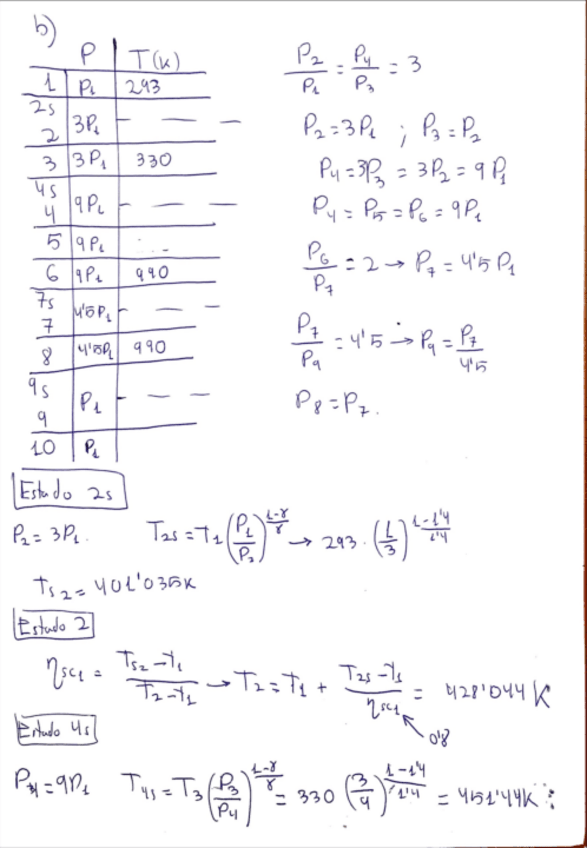 b)
P T(K)
1 P₁ 293
2s
2 3P₁ — — —
3 3P₁ 330
4s
4 9P₁ — — —
5 9P₁ ...
6 9P₁ 990
7s
7 4'5P₁ — — —
8 4'5P₁ 990
9s
9 P₁ — — —
10 P₁
P₂/P₁ = P₄/P₃ = 3
P₂=3P₁ ; P₃=P₂
P₄=3P₃ = 3P₂ = 9P₁
P₄ = P₅ = P₆ = 9P₁
P₆/P₇ = 2 → P₇ = 4'5 P₁
P₇/P₉ = 4'5 → P₉ = P₇/4'5
P₈ = P₇.
Estado 2s
P₂ = 3P₁. T₂s = T₁ (P₁/P₂)^((1-γ)/γ) → 293 · (1/3)^((1-1'4)/1'4)
Ts₂ = 401'035K
Estado 2
ηsc₁ = (Ts₂-T₁)/(T₂-T₁) → T₂ = T₁ + (T₂s-T₁)/ηsc₁ = 428'044 K
0'8
Estado 4s
P₄ = 9P₁ T₄s = T₃ (P₃/P₄)^((1-γ)/γ) = 330 (3/9)^((1-1'4)/1'4) = 451'44K